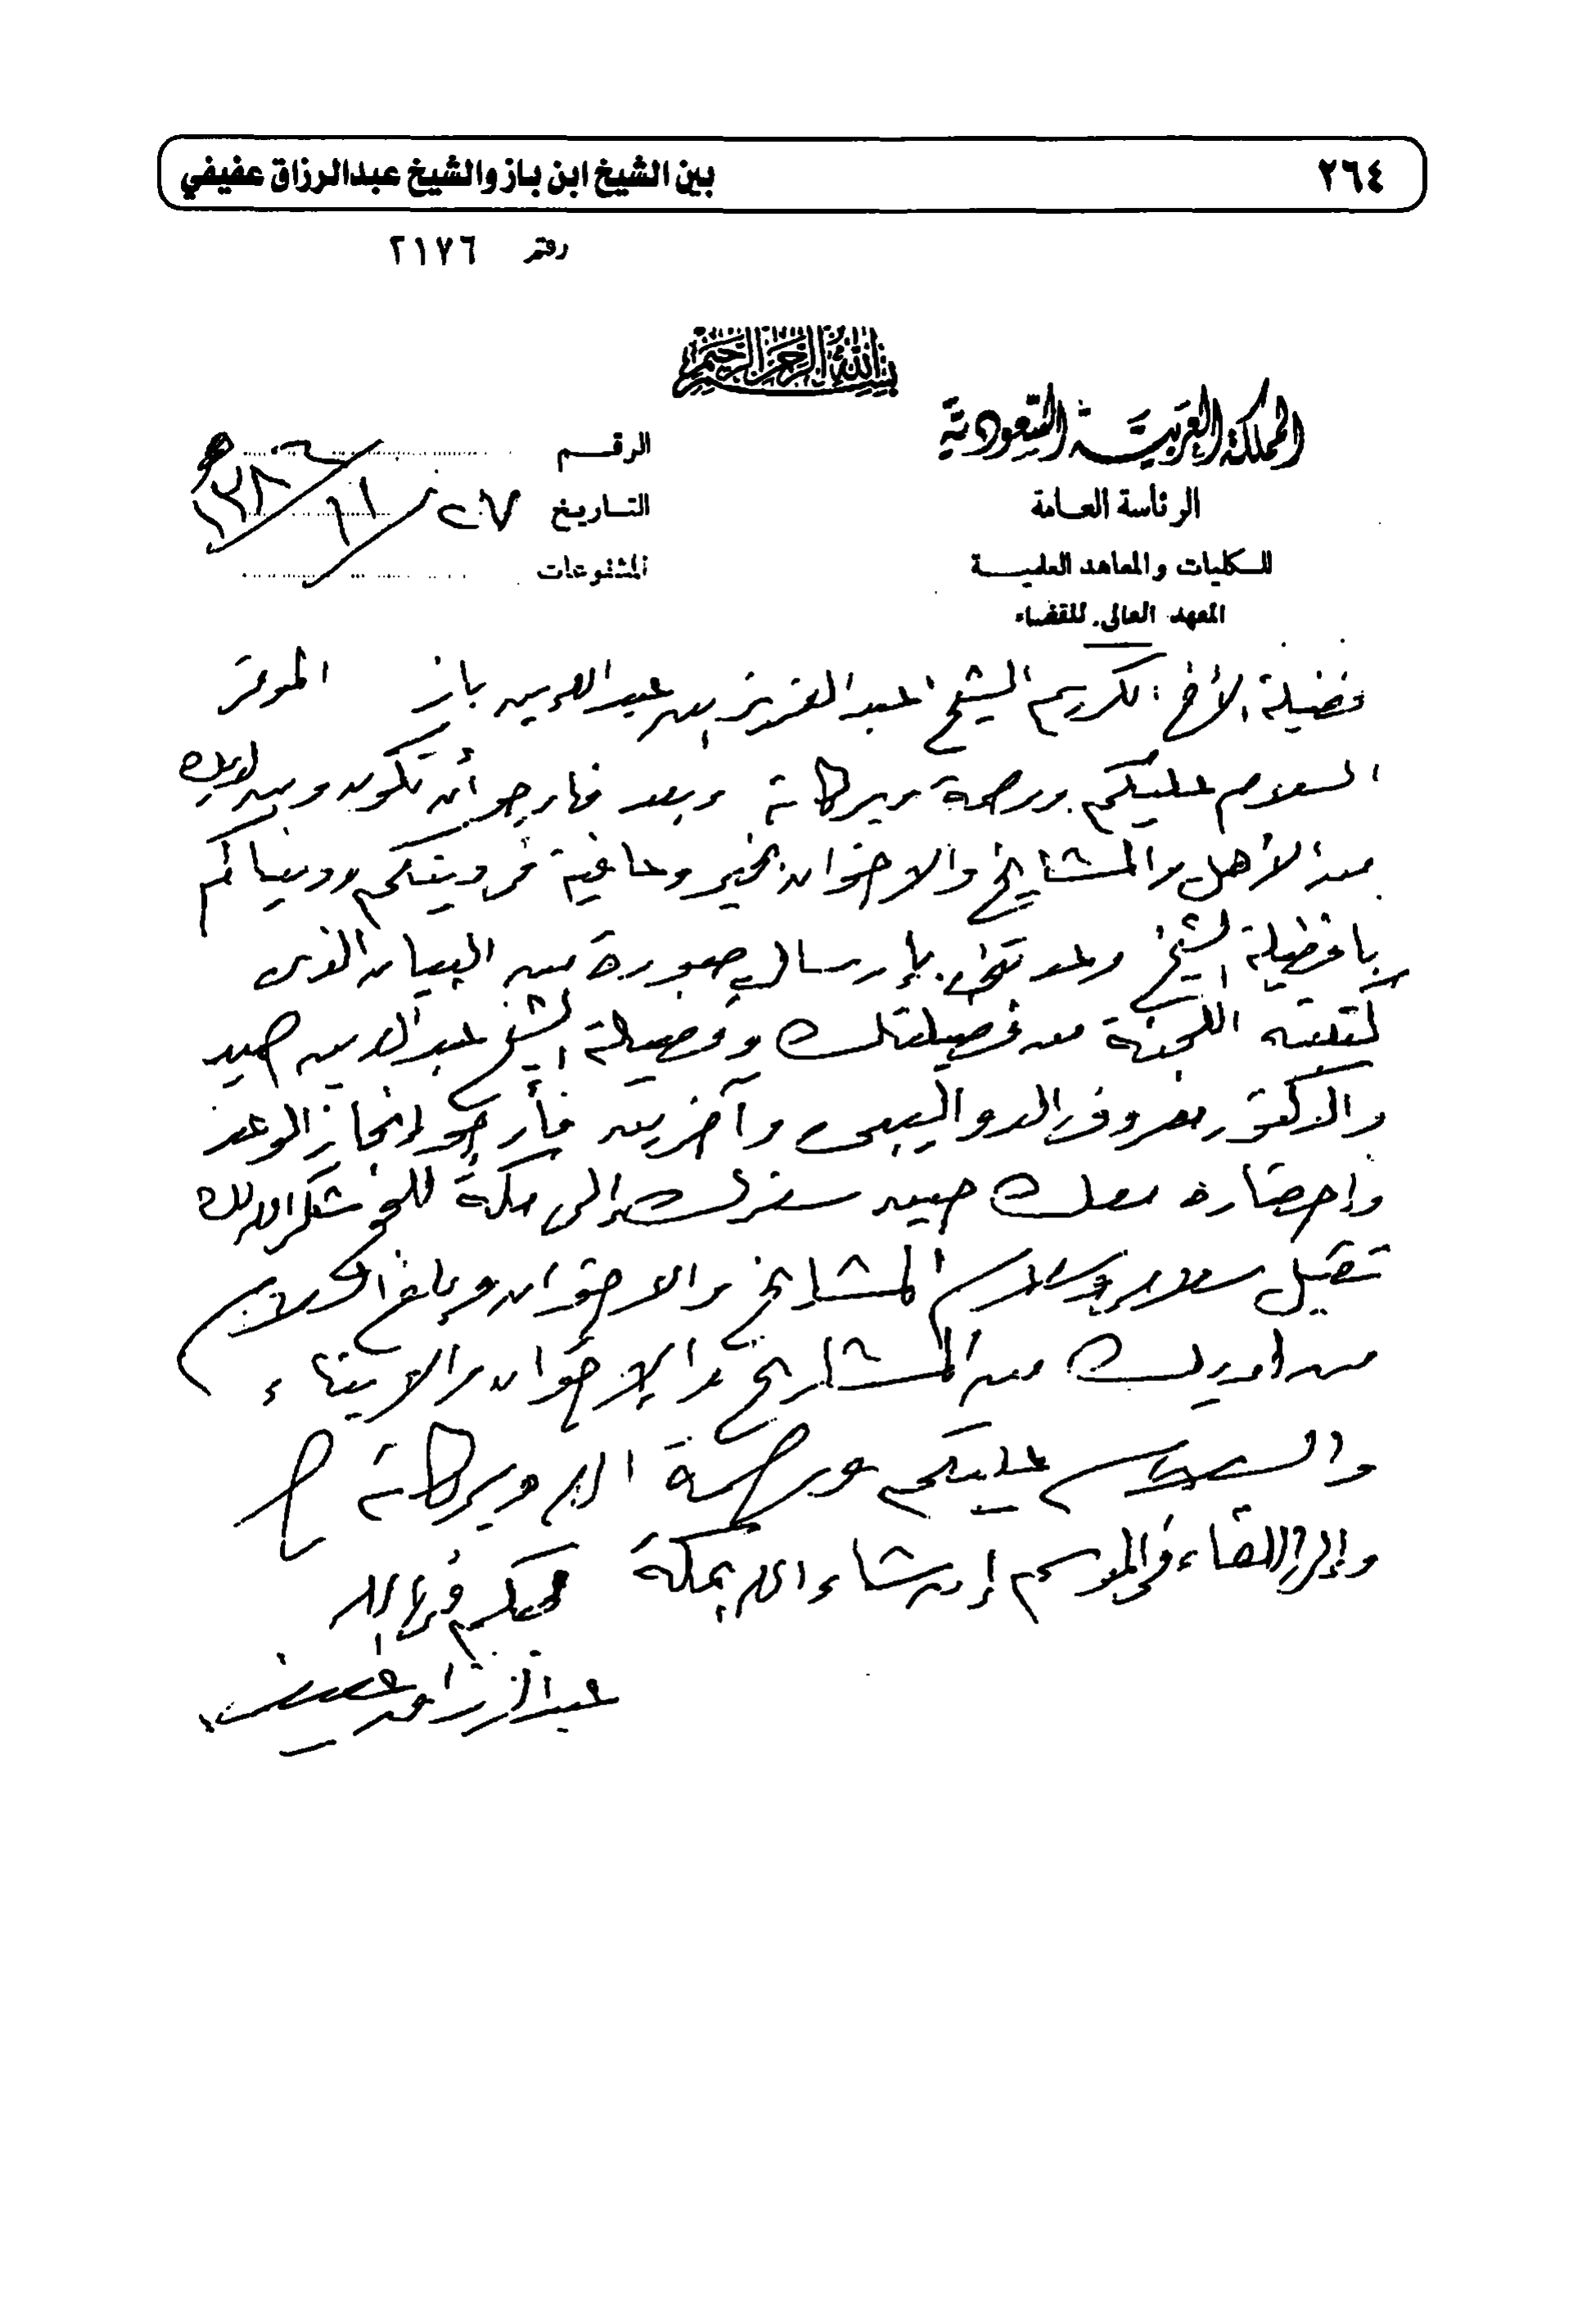 ٢٦٤
بين الشيخ ابن باز والشيخ عبدالرزاق عفيفي
رقم ٢١٧٦
بسم الله الرحمن الرحيم
المملكة العربية السعودية
الرئاسة العامة
للكليات والمعاهد العلمية
المعهد العالى للقضاء
الرقم
التاريخ ٢٧ / ١١ / ١٣٨٦ هـ
المشفوعات
فضيلة الأخ الكريم الشيخ عبد العزيز بن عبد الله بن باز الموقر
السلام عليكم ورحمة وبركاته وبعد فأرجو أن تكون ومن لديك
من الأهل والمشايخ والاخوان بخير وعافية في دينكم ودنياكم
يا فضيلة الشيخ وعدتني بإرسال صورة من البيان الذى
كتبته اللجنة من فضيلتك وفضيلة الشيخ عبد الله بن حميد
والدكتور معروف الدواليبى وآخرين فأرجو إنجاز الوعد
وإحضاره معك حين سفرك إلى مكة للحج شكر الله لك
تقبل سلامى وسلام المشايخ والاخوان وبلغ السلام
من لديك من المشايخ والإخوان والابناء
والسلام عليكم ورحمة الله وبركاته
وإلى اللقاء في الموسم إن شاء الله بمكة محبكم في الله
عبد الرزاق عفيفي